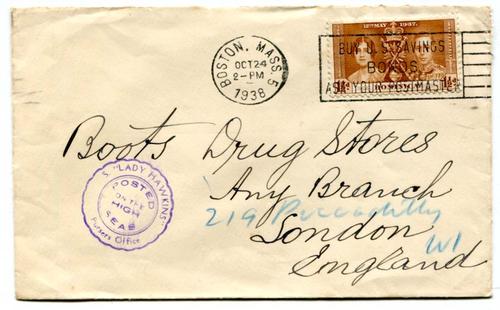 12TH MAY 1937.
BOSTON, MASS. 5
OCT 24
2-PM
1938
BUY U.S. SAVINGS
BONDS
ASK YOUR POSTMASTER
Boots Drug Stores
Any Branch
219 Piccadilly
London W1
England
S.S. "LADY HAWKINS"
POSTED
ON THE
HIGH
SEAS
Pursers Office